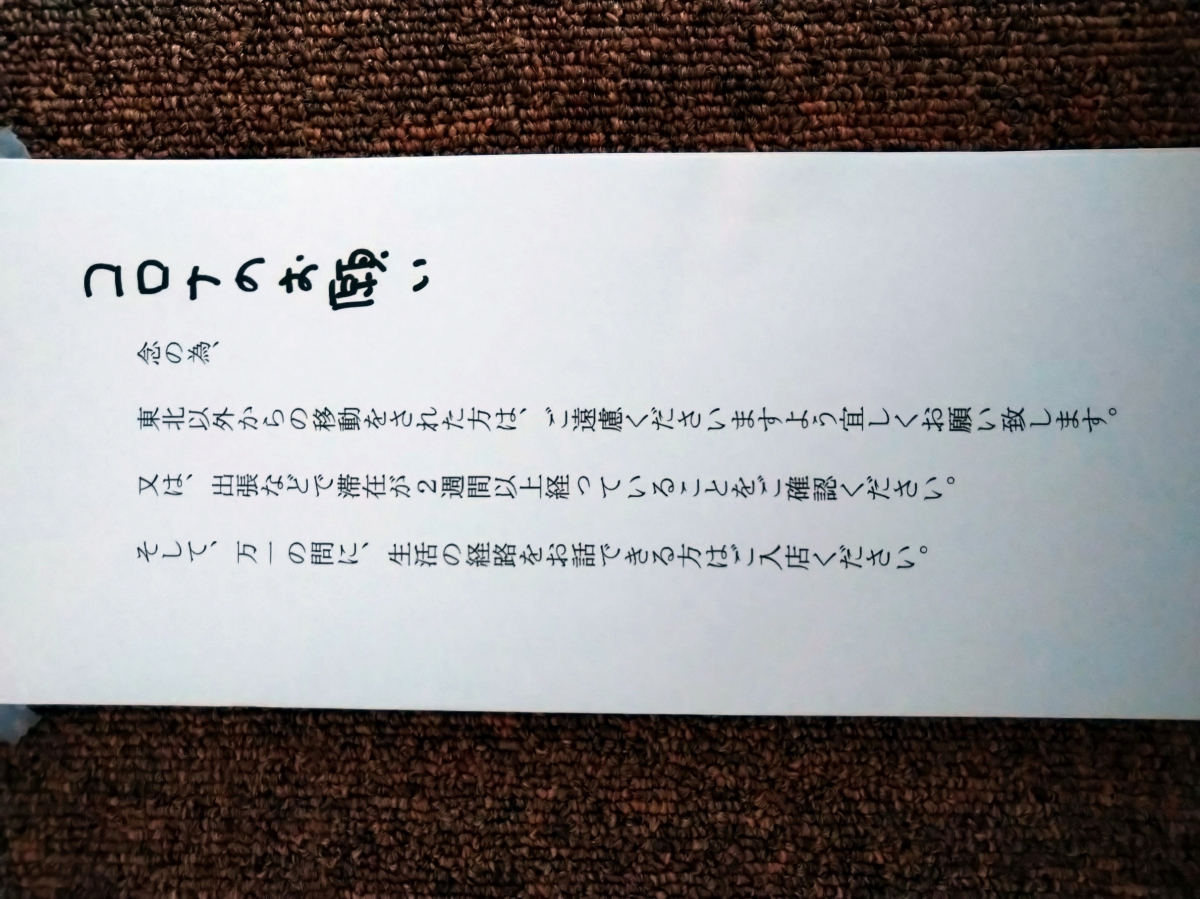 コロナのお願い
念の為、
東北以外からの移動をされた方は、ご遠慮くださいますよう宜しくお願い致します。
又は、出張などで滞在が2週間以上経っていることをご確認ください。
そして、万一の問に、生活の経路をお話できる方はご入店ください。